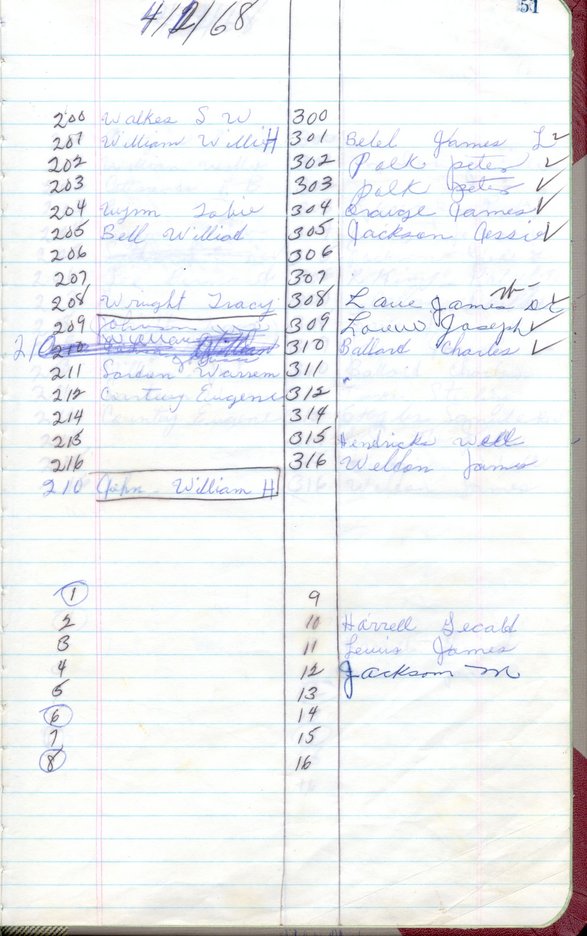 4/2/68
51
200 Walkes S W 300
201 William Willie H 301 Betel James L 2
202 302 Polk peter 2
203 303 polk peter ✓
204 Wynn Tobie 304 James ✓
205 Bell Williad 305 Jackson Jessie ✓
206 306
207 307
208 Wright Tracy 308 Lane James W- ✓
209 Johnson 309 Joseph ✓
210 210 William 310 Ballard Charles ✓
211 Warrem 311
212 Century Eugene 312
214 314
215 315 Hendricks Well
216 316 Weldon James
210 John William H
1 9
2 10 Harrell Gecald
3 11 Lewis James
4 12 Jackson M
5 13
6 14
7 15
8 16